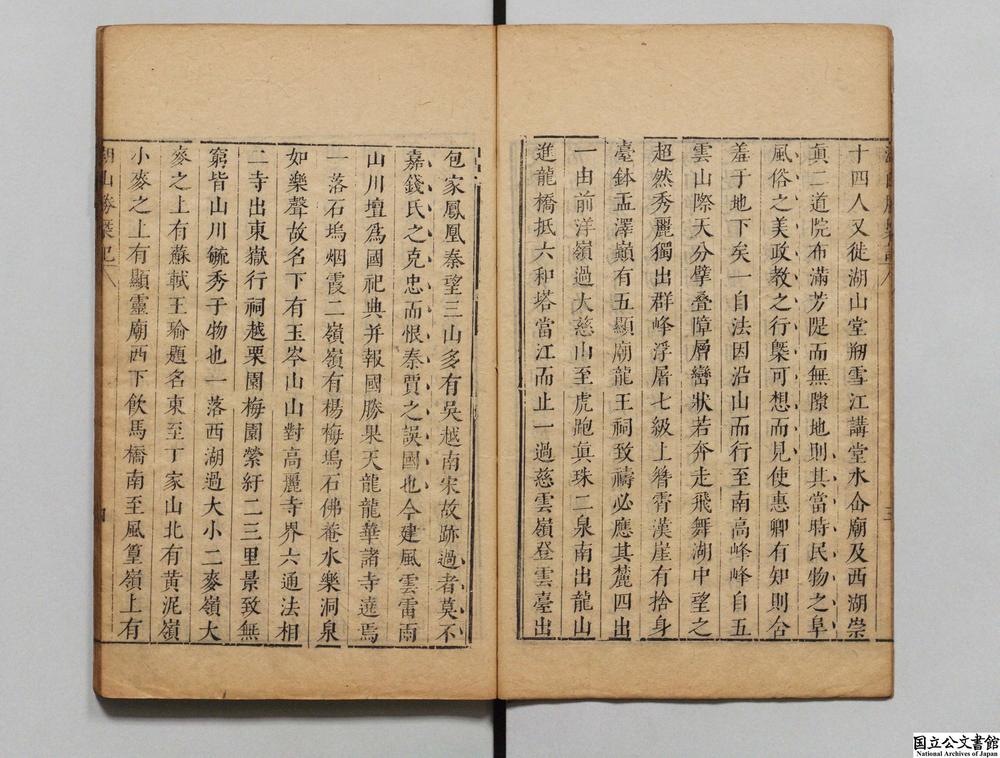 十四人又徙湖山堂剏雪江講堂水仚廟及西湖崇
眞二道院布滿芳隄而無隙地則其當時民物之阜
風俗之美政教之行槩可想而見使惠卿有知則合
羞于地下矣一自法因沿山而行至南高峰峰自五
雲山際天分擘叠障層巒狀若奔走飛舞湖中望之
超然秀麗獨出群峰浮屠七級上簪霄漢崖有捨身
臺鉢盂澤巔有五顯廟龍王祠致禱必應其麓四出
一由前洋嶺過大慈山至虎跑眞珠二泉南出龍山
進龍橋抵六和塔當江而止一過慈雲嶺登雲臺出
三
包家鳳凰秦望三山多有吳越南宋故跡過者莫不
嘉錢氏之克忠而恨秦賈之誤國也今建風雲雷雨
山川壇爲國祀典并報國勝果天龍龍華諸寺遶焉
一落石塢烟霞二嶺嶺有楊梅塢石佛菴水樂洞泉
如樂聲故名下有玉岑山山對高麗寺界六通法相
二寺出東嶽行祠越栗園梅園縈紆二三里景致無
窮皆山川毓秀于物也一落西湖過大小二麥嶺大
麥之上有蘇軾王瑜題名東至丁家山北有黃泥嶺
小麥之上有顯靈廟西下飲馬橋南至風篁嶺上有
湖山勝槩記
四
国立公文書館
National Archives of Japan